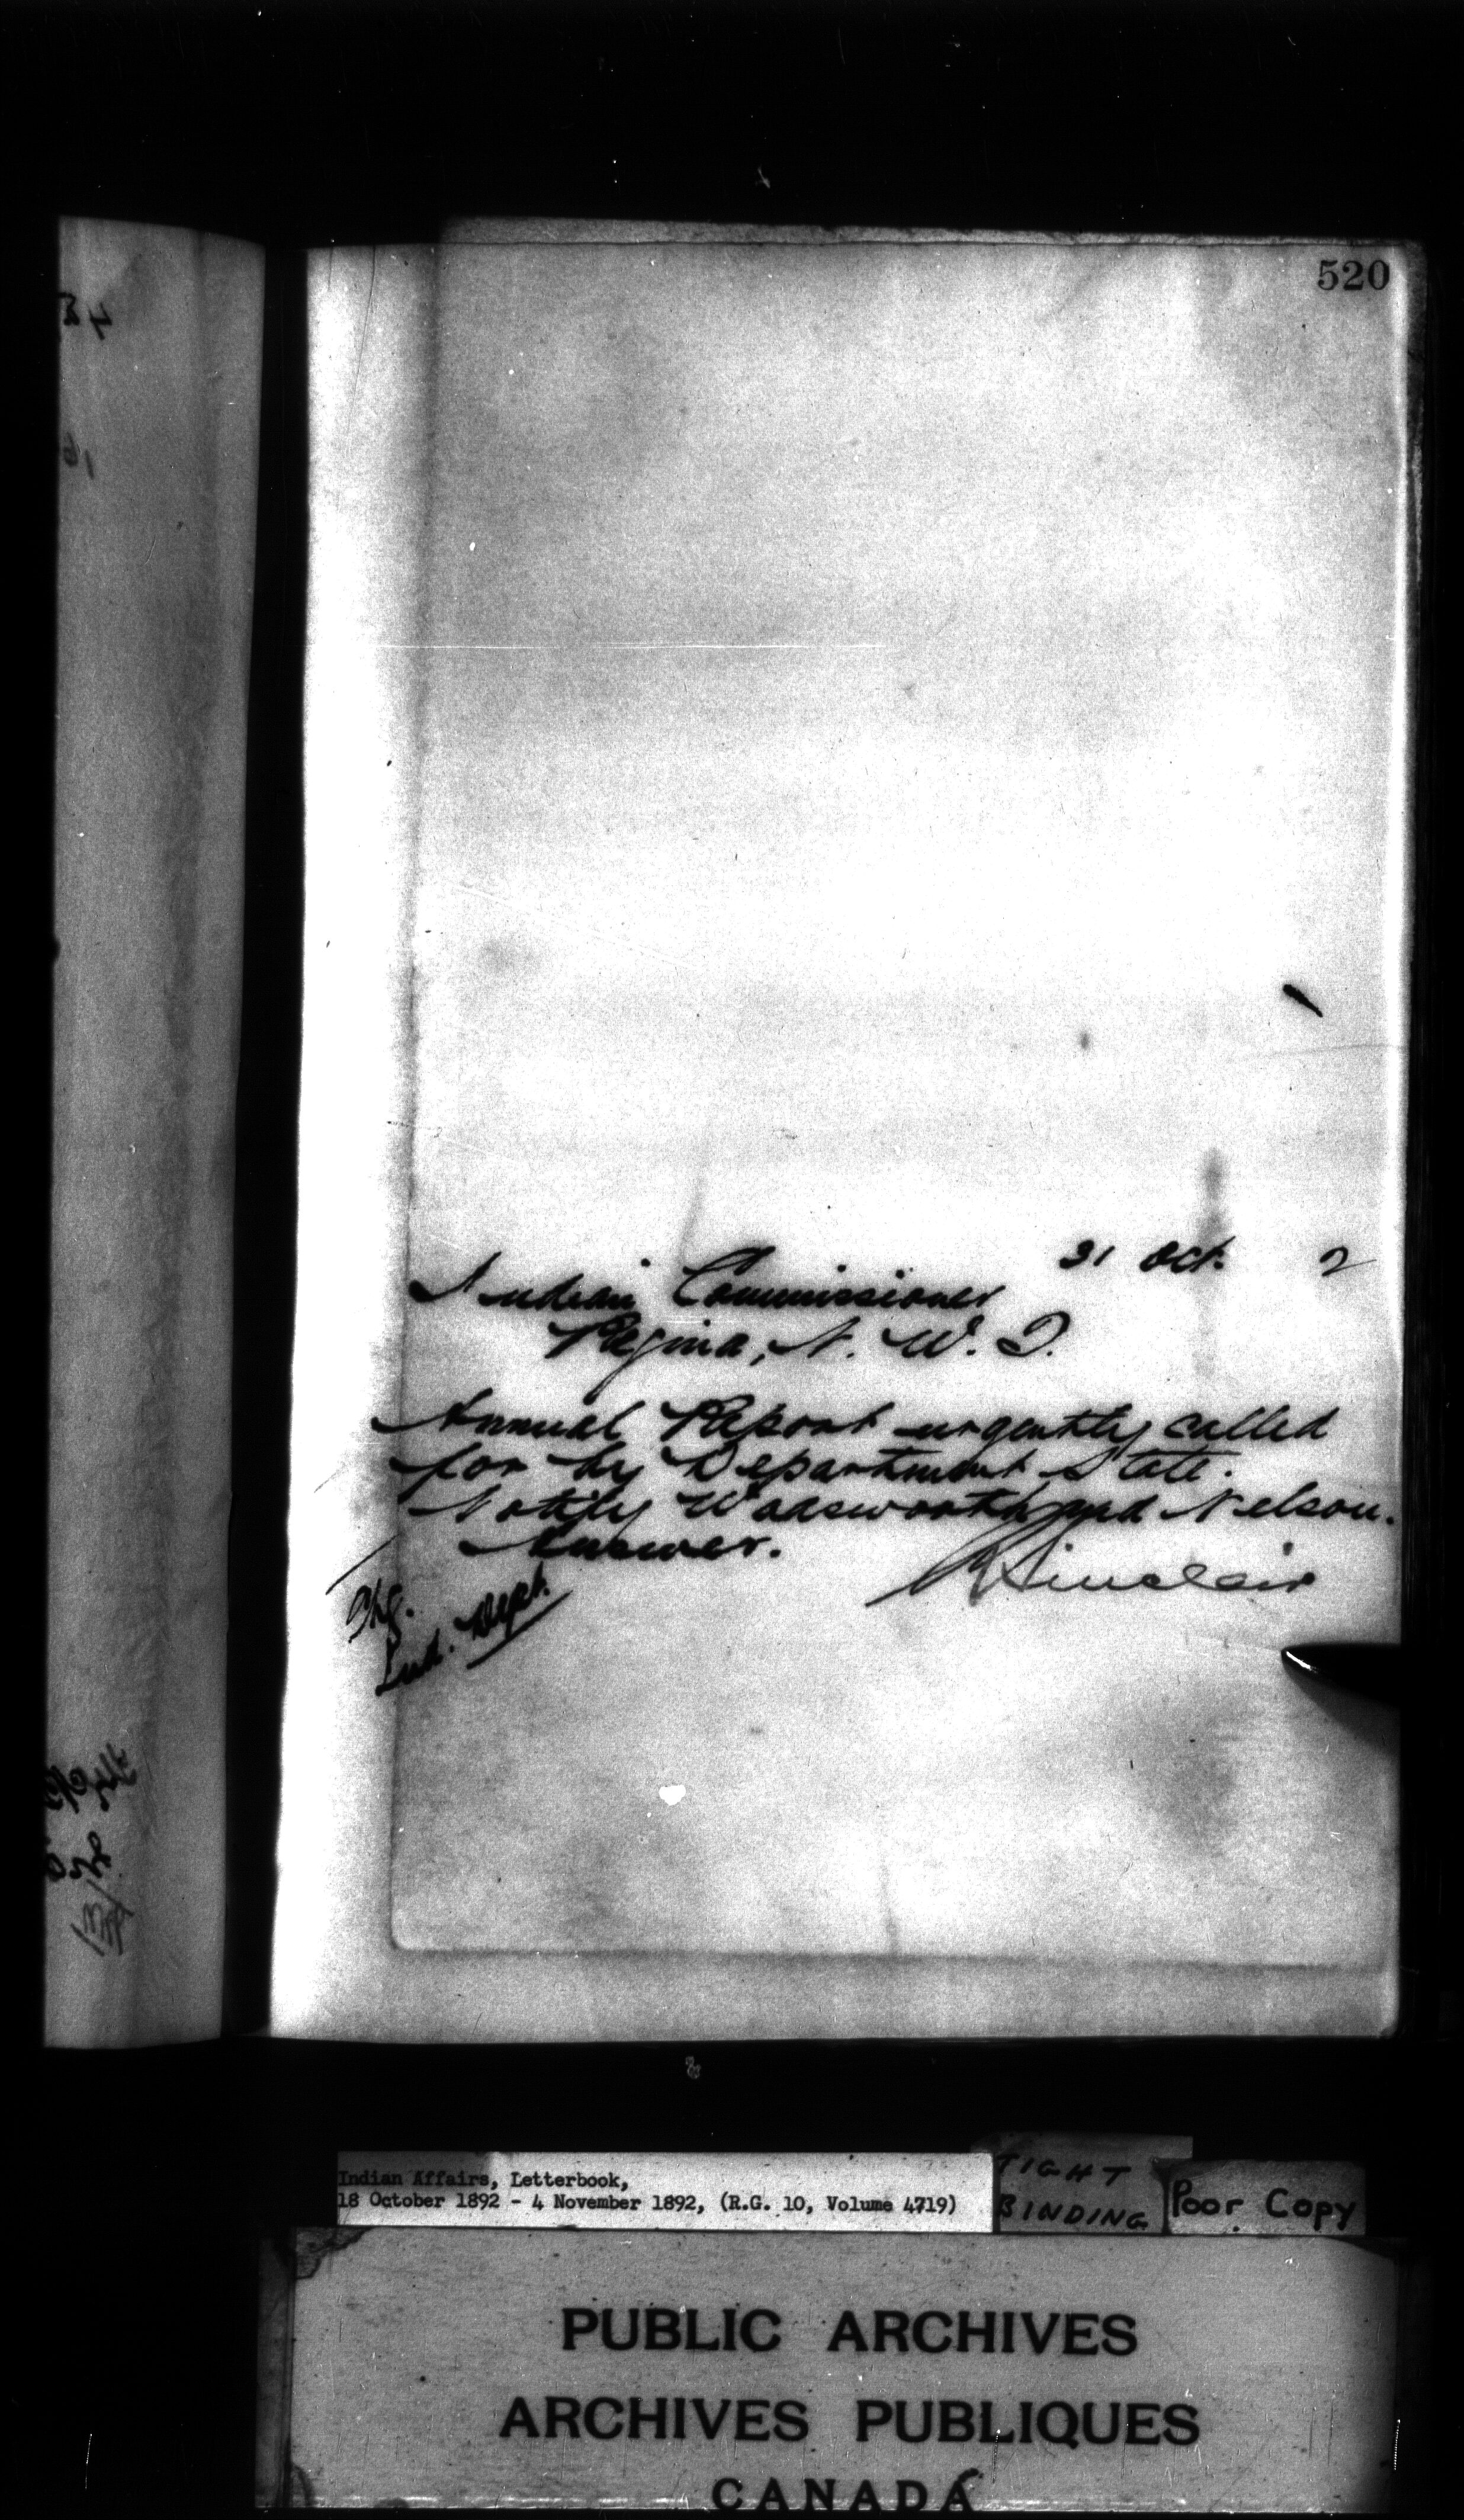 520
31 Oct. 2
Indian Commissioner
Regina, N. W. T.
Annual Report urgently called
for by Department State.
Notify Wadsworth and Nelson.
Answer.
R Sinclair
Chg.
Ind. Dept.
Indian Affairs, Letterbook,
18 October 1892 - 4 November 1892, (R.G. 10, Volume 4719)
TIGHT
BINDING
Poor Copy
PUBLIC ARCHIVES
ARCHIVES PUBLIQUES
CANADA